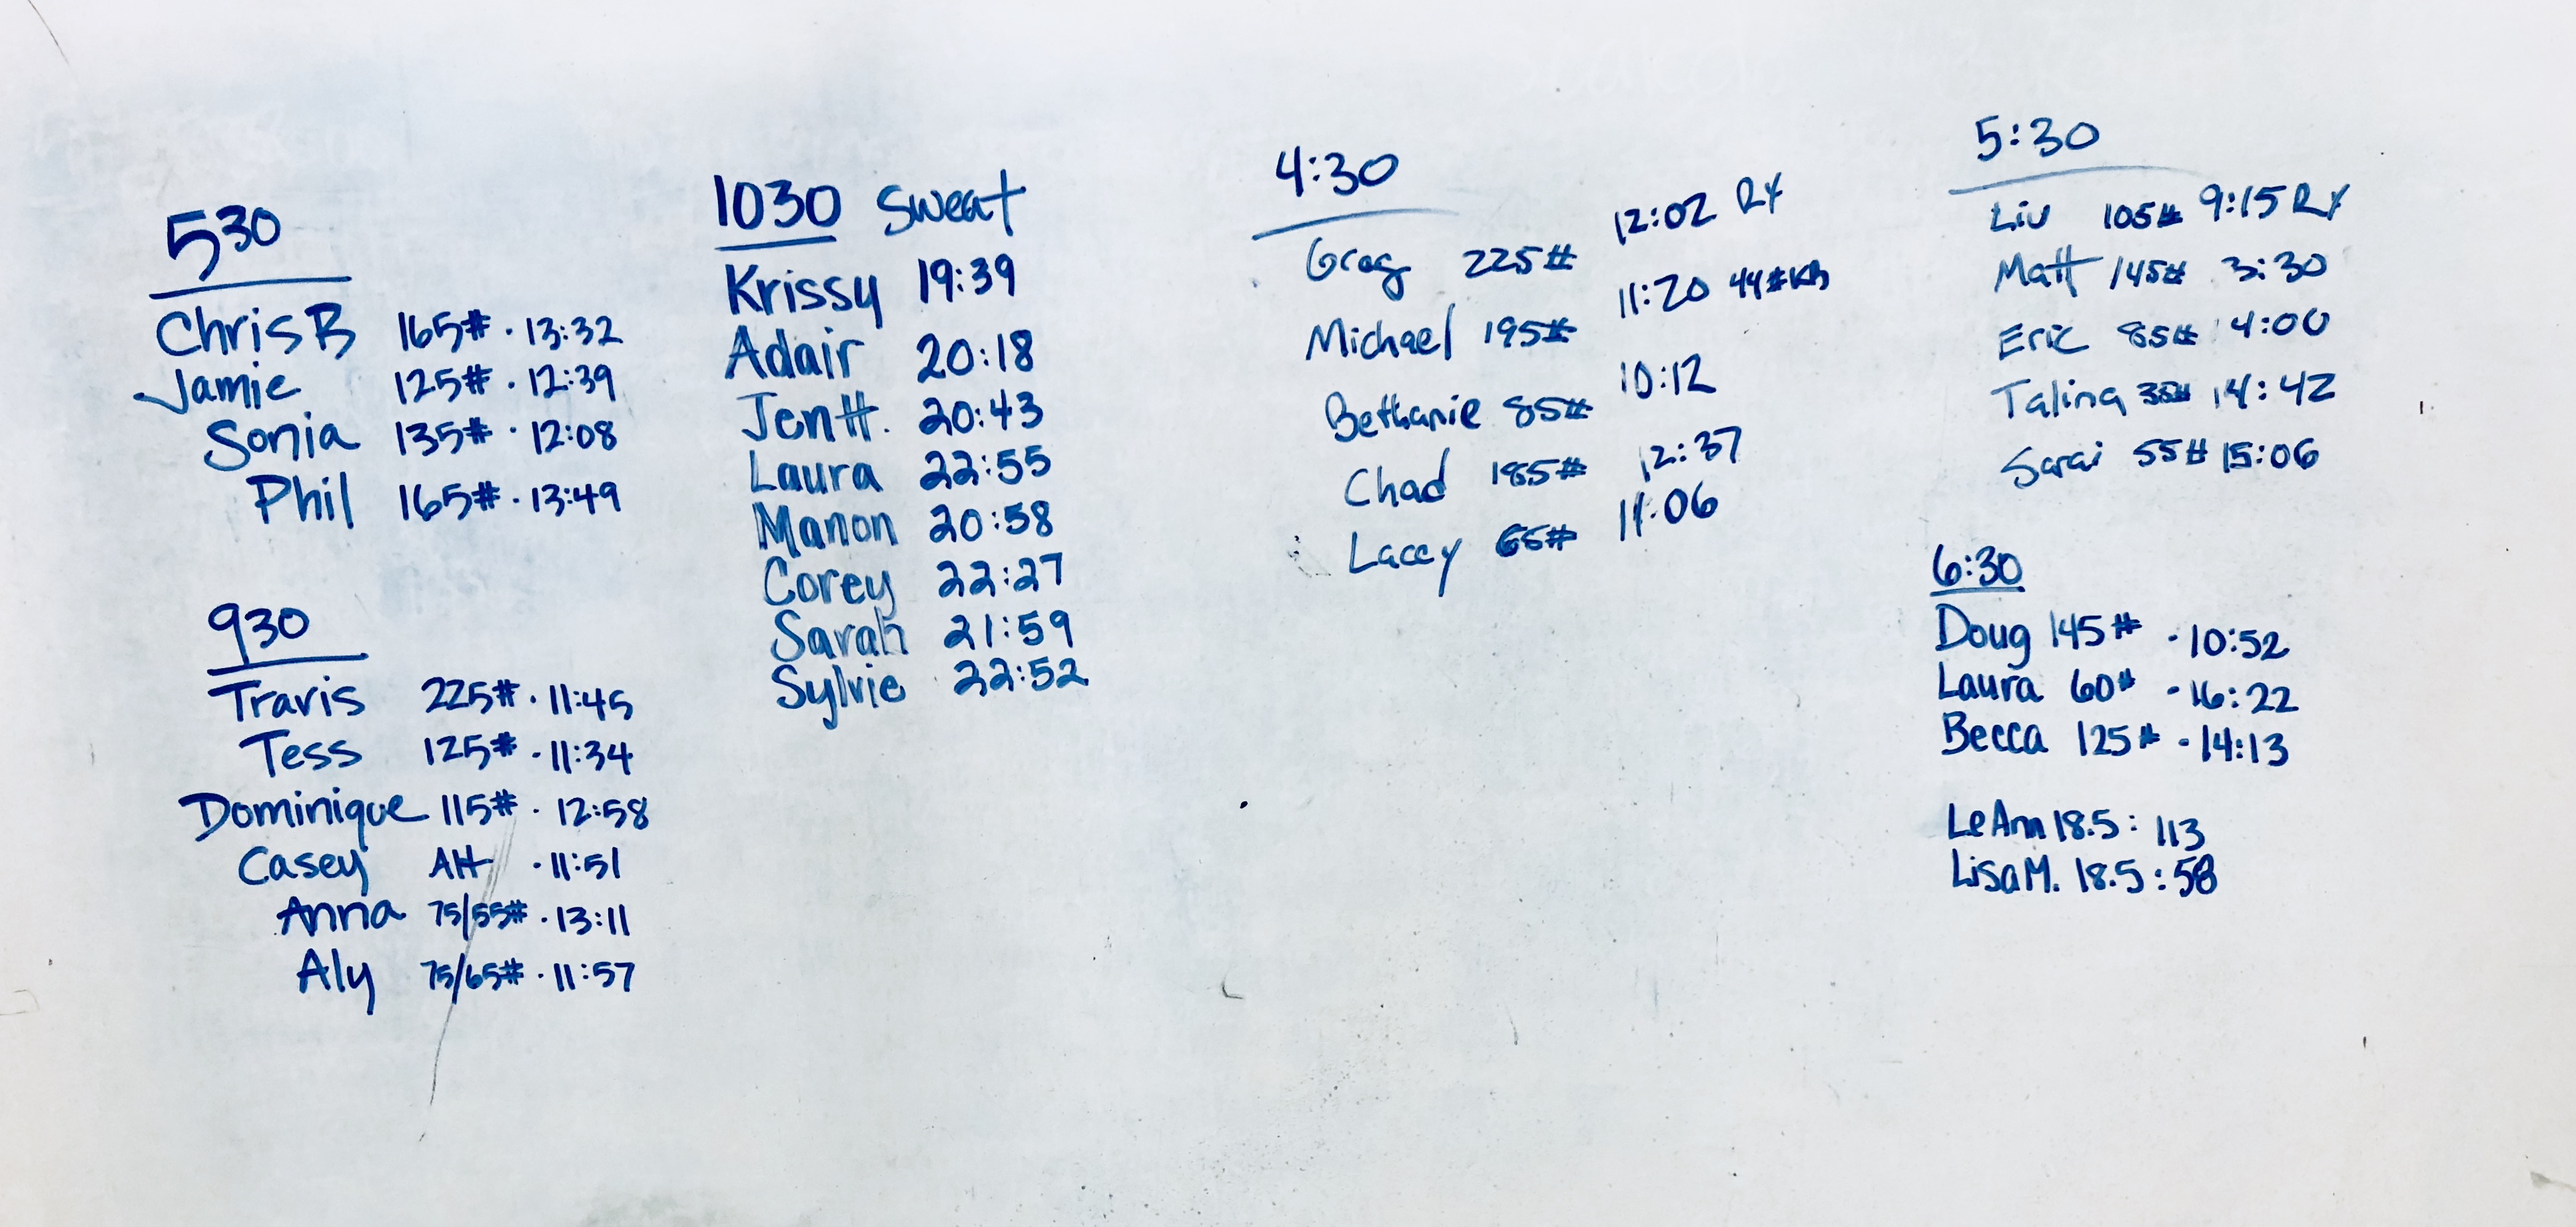 530
Chris B 165# · 13:32
Jamie 125# · 12:39
Sonia 135# · 12:08
Phil 165# · 13:49
930
Travis 225# · 11:45
Tess 125# · 11:34
Dominique 115# · 12:58
Casey AH · 11:51
Anna 75/55# · 13:11
Aly 75/65# · 11:57
1030 Sweat
Krissy 19:39
Adair 20:18
Jen H. 20:43
Laura 22:55
Manon 20:58
Corey 22:27
Sarah 21:59
Sylvie 22:52
4:30
Greg 225# 12:02 RX
Michael 195# 11:20 44#KB
Bethanie 85# 10:12
Chad 185# 12:37
Lacey 65# 11:06
5:30
Liv 105# 9:15 RX
Matt 145# 3:30
Eric 85# 4:00
Talina 35# 14:42
Sarai 55# 15:06
6:30
Doug 145# · 10:52
Laura 60# · 16:22
Becca 125# · 14:13
LeAnn 18.5: 113
Lisa M. 18.5: 58